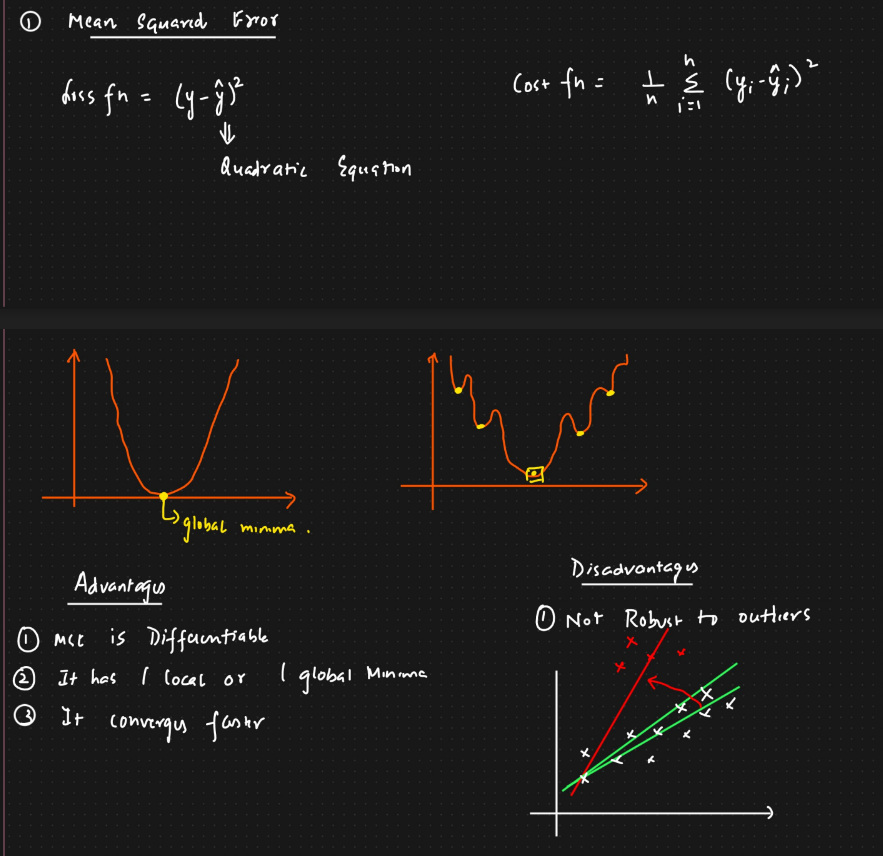 ① Mean Squared Error
Loss fn = (y-ŷ)²
Cost fn = 1/n Σ i=1 n (yi-ŷi)²
⇓
Quadratic Equation
global minima.
Advantages
① MSE is Differentiable
② It has 1 local or 1 global Minima
③ It converges faster
Disadvantages
① Not Robust to outliers